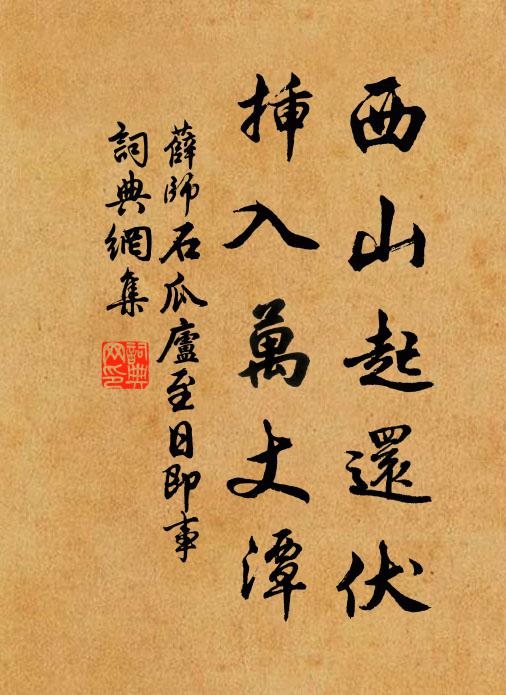 西山起還伏
挿入萬丈潭
薛師石瓜廬至日即事
詞典網集
詞典网印